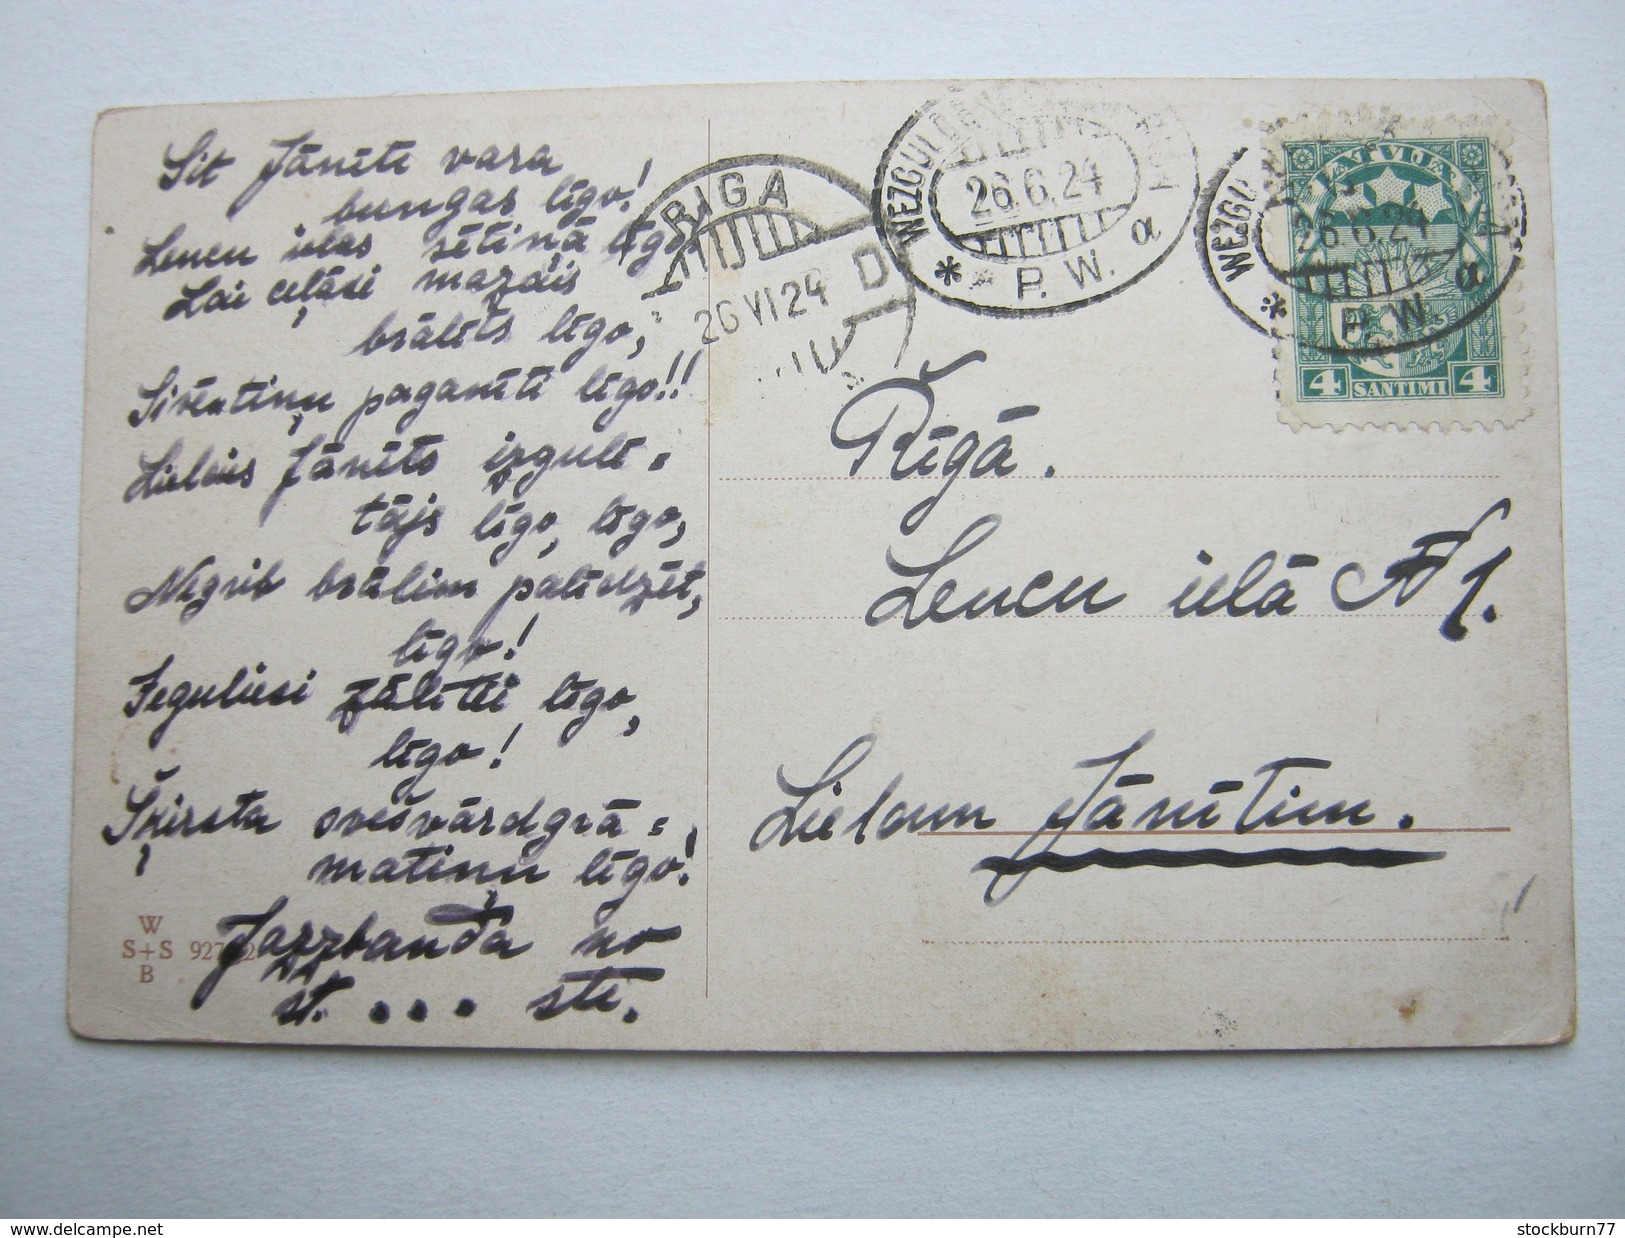 Sit Jānīti vara
bungas līgo!
Lencu ielas sētiņā līgo,
Lai ceļāsi mazais
brālīts līgo,
Sivēntiņu paganīti līgo!!
Lielais Jānīts izgulē=
tājs līgo, līgo,
Negrib brālim palīdzēt,
līgo!
Ieguliesi zālītēi līgo,
līgo!
Šķirsta svešvārdgrā=
matiņu līgo!
Jazzbanda no
st. ... stē.
W
S+S 927
B
RIGA
26 VI 24
D
26.6.24
* P. W. α
WEZGU
26.6.24
* P. W. α
LATVIJA
4 SANTIMI 4
Rīgā.
Lencu ielā № 1.
Lielam Jānītim.
www.delcampe.net
stockburn77